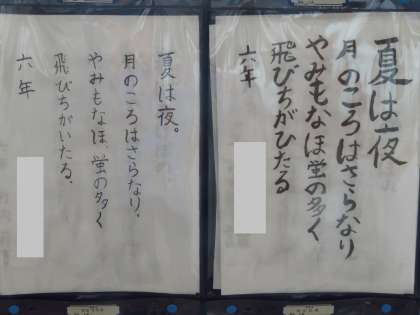 夏は夜
月のころはさらなり
やみもなほ蛍の多く
飛びちがひたる
六年
夏は夜。
月のころはさらなり、
やみもなほ、蛍の多く
飛びちがいたる、
六年